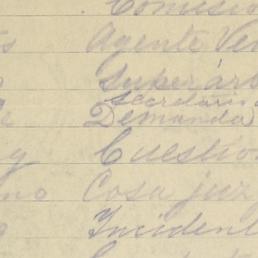 Comisio
Agente Ven
Superár
Secretario
Demanda
g Cuestio
no Cosa juz
o Incident